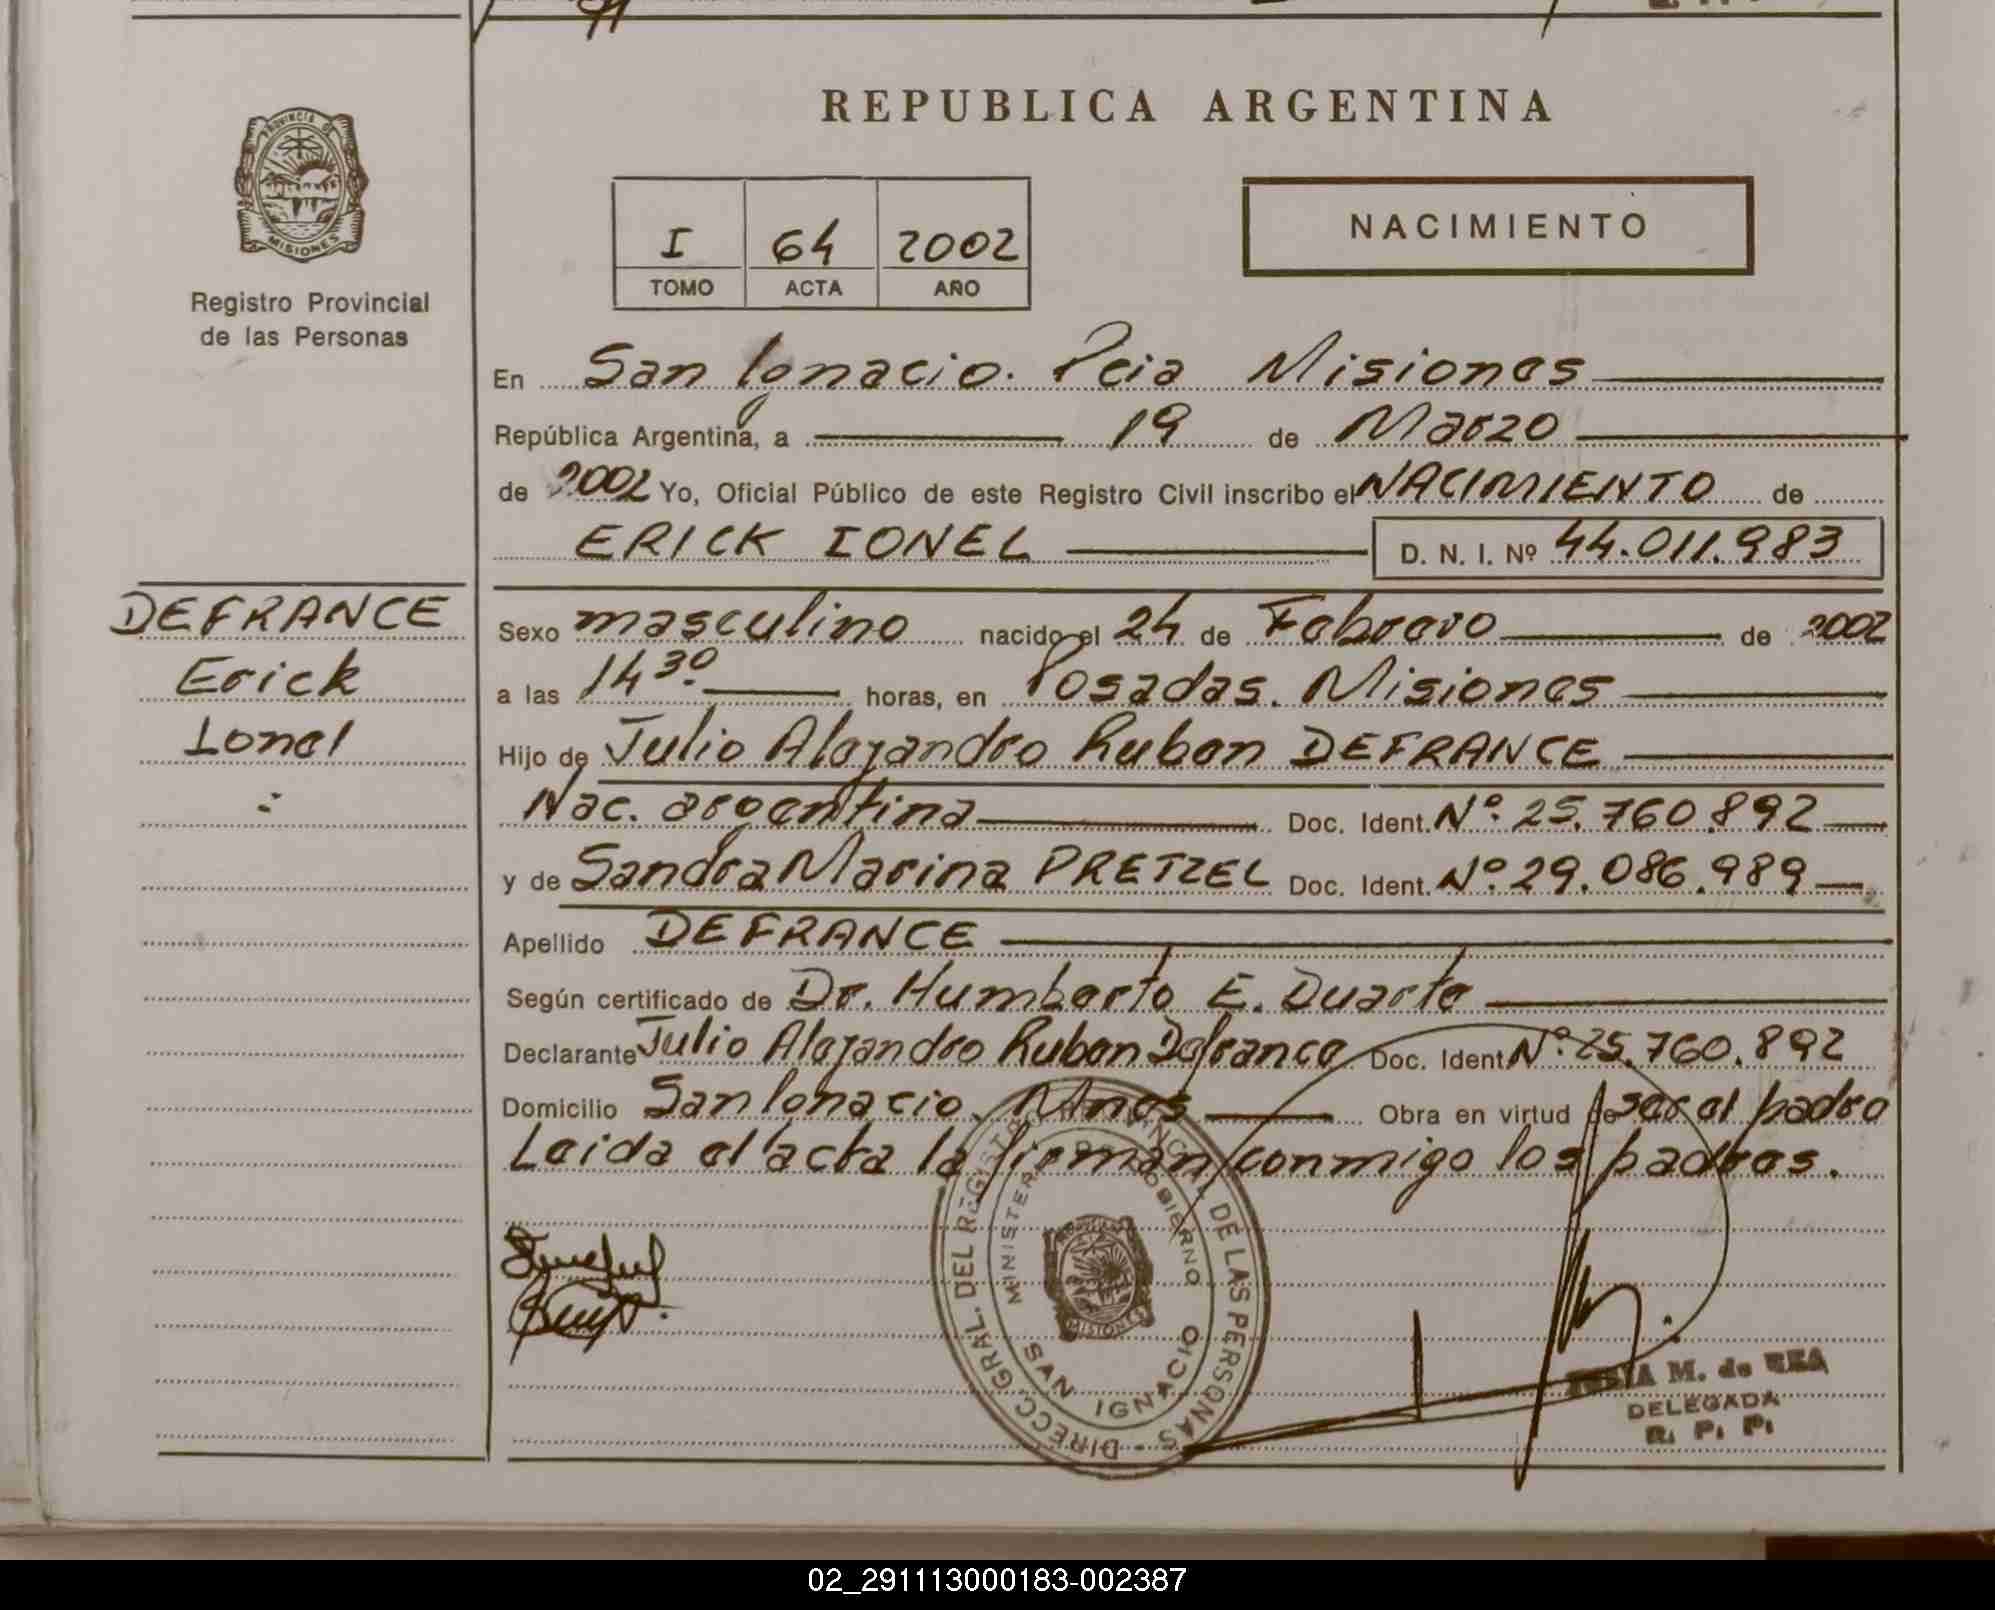 REPUBLICA ARGENTINA
PROVINCIA DE
MISIONES
Registro Provincial
de las Personas
I 64 2002
TOMO ACTA AÑO
NACIMIENTO
En San Ignacio. Pcia Misiones
República Argentina, a 19 de Marzo
de 2002 Yo, Oficial Público de este Registro Civil inscribo el NACIMIENTO de
ERICK IONEL D. N. I. Nº 44.011.983
DEFRANCE
Erick
Ionel
Sexo masculino nacido el 24 de Febrero de 2002
a las 14 30. horas, en Posadas. Misiones
Hijo de Julio Alejandro Ruben DEFRANCE
Nac. argentina Doc. Ident. Nº. 25.760.892
y de Sandra Marina PRETZEL Doc. Ident. Nº. 29.086.989
Apellido DEFRANCE
Según certificado de Dr. Humberto E. Duarte
Declarante Julio Alejandro Ruben Defrance Doc. Ident. Nº. 25.760.892
Domicilio San Ignacio. Mnes Obra en virtud de ser el padre
Leida el acta la firman conmigo los padres.
DIRECC. GRAL. DEL REGISTRO PROVINCIAL DE LAS PERSONAS
MINISTERIO DE GOBIERNO
MISIONES
SAN IGNACIO
M. de
DELEGADA
R. P. P.
02_291113000183-002387